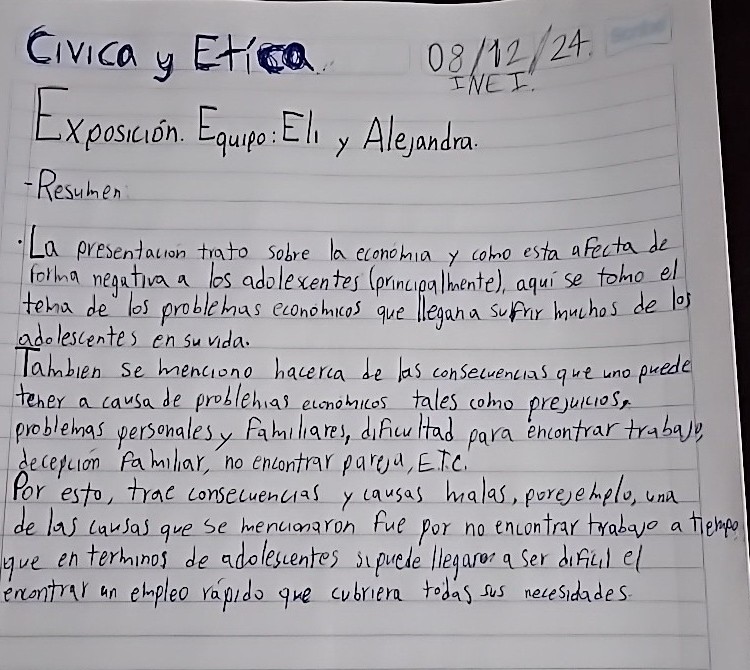 Civica y Etica.
08/12/24.
INEI.
Exposición. Equipo: Eli y Alejandra.
-Resumen
·La presentacion trato sobre la economia y como esta afecta de
forma negativa a los adolexentes (principalmente), aquí se tomo el
tema de los problemas económicos que llegan a sufrir muchos de los
adolescentes en su vida.
Tambien se menciono hacerca de las consecuencias que uno puede
tener a causa de problemas económicos tales como prejuicios,
problemas personales y familiares, dificultad para encontrar trabajo,
decepción familiar, no encontrar pareja, ETC.
Por esto, trae consecuencias y causas malas, por ejemplo, una
de las causas que se mencionaron fue por no encontrar trabajo a tiempo
que en terminos de adolescentes si puede llegar a ser dificil el
encontrar un empleo rápido que cubriera todas sus necesidades.